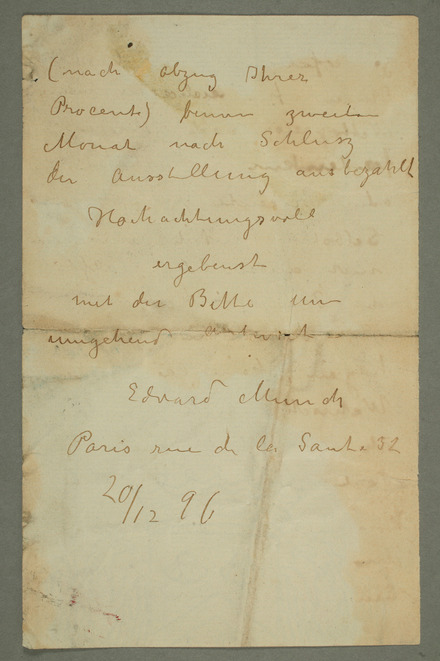 (nach abzug Ihrer
Procente) binnen zweiten
Monat nach Schlusz
der Ausstellung ausbezahlt
Hochachtungsvoll
ergebenst
mit der Bitte um
umgehend Antwort
Edvard Munch
Paris rue de la Santé 32
20/12 96